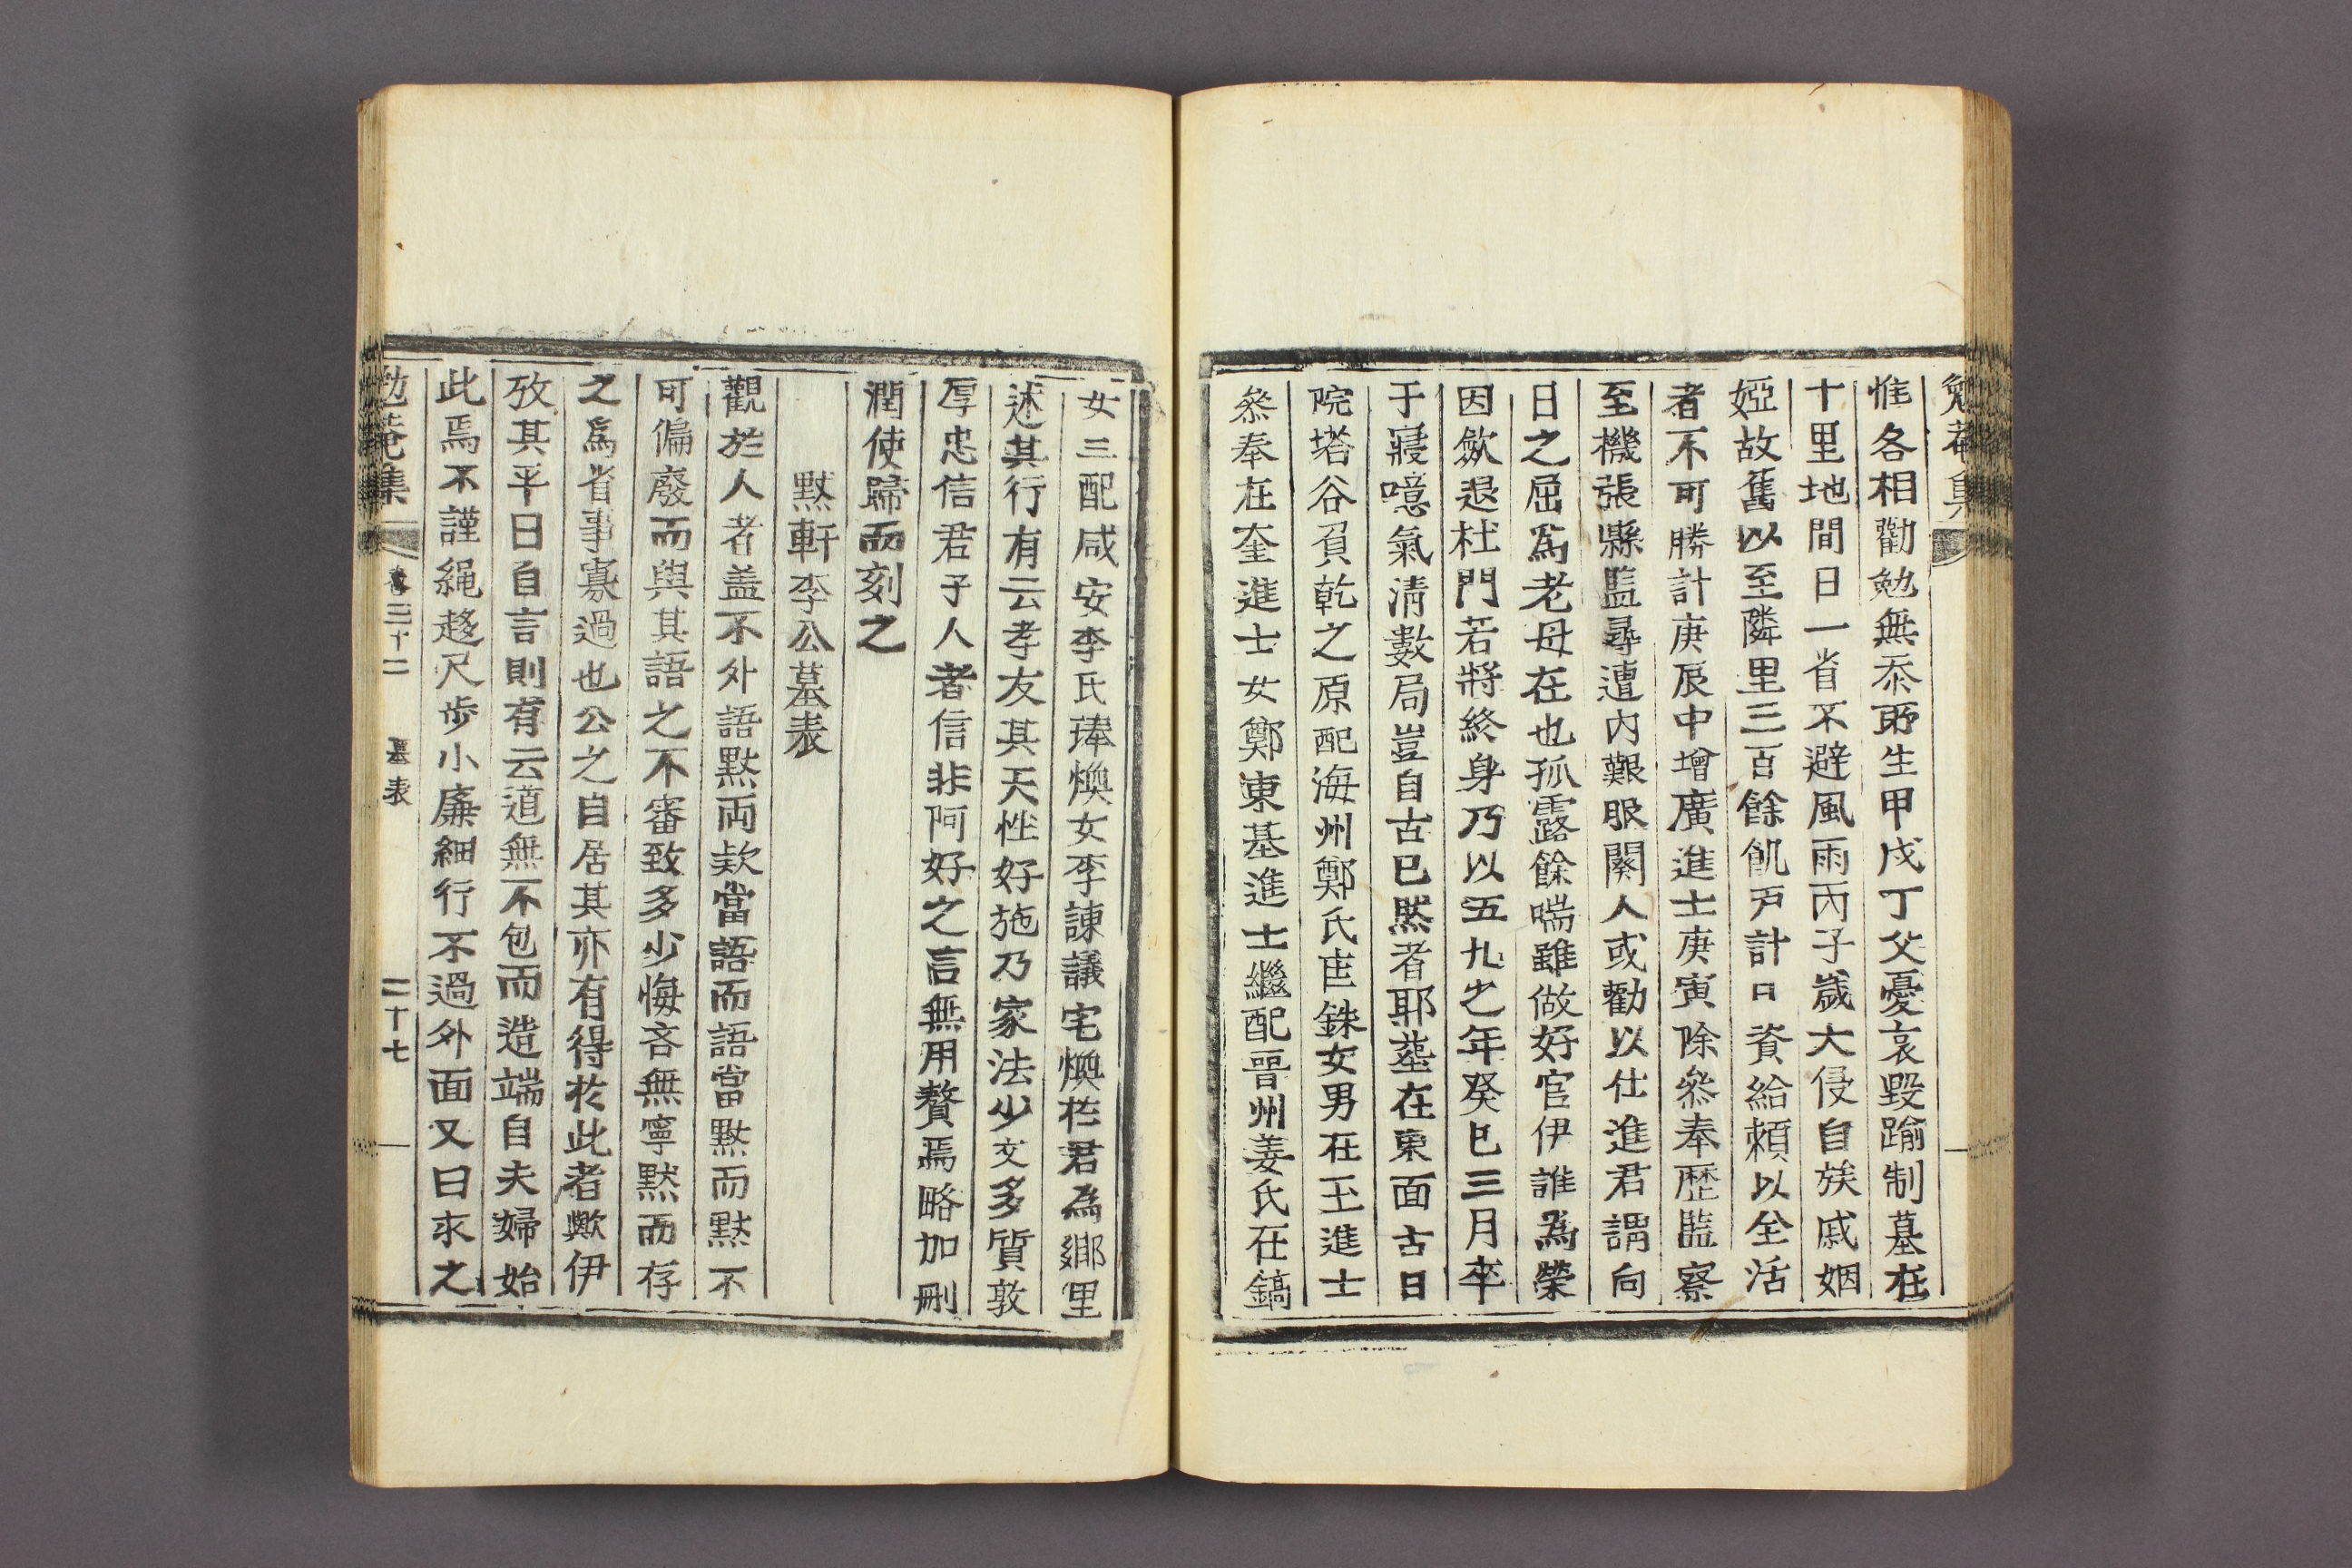 勉菴集
惟各相勸勉無忝所生甲戌丁父憂哀毀踰制墓在
十里地間日一省不避風雨丙子歲大侵自族戚姻
婭故舊以至隣里三百餘飢戶計口資給賴以全活
者不可勝計庚辰中增廣進士庚寅除叅奉歷監察
至機張縣監尋遭內艱服闋人或勸以仕進君謂向
日之屈爲老母在也孤露餘喘雖做好官伊誰爲榮
因斂退杜門若將終身乃以五九之年癸巳三月卒
于寢噫氣淸數局豈自古已然者耶墓在東面古日
院塔谷負乾之原配海州鄭氏 銖女男在玉進士
叅奉在奎進士女鄭東基進士繼配晋州姜氏在鎬
女三配咸安李氏琫煥女李諫議宅煥於君爲鄕里
述其行有云孝友其天性好施乃家法少文多質敦
厚忠信君子人者信非阿好之言無用贅焉略加刪
潤使歸而刻之
默軒李公墓表
觀於人者盖不外語默両欵當語而語當默而默不
可偏廢而與其語之不審致多少悔吝無寧默而存
之爲省事寡過也公之自居其亦有得於此者歟伊
攷其平日自言則有云道無不包而造端自夫婦始
此焉不謹繩趍尺步小廉細行不過外面又曰求之
勉菴集 卷三十二 墓表 二十七